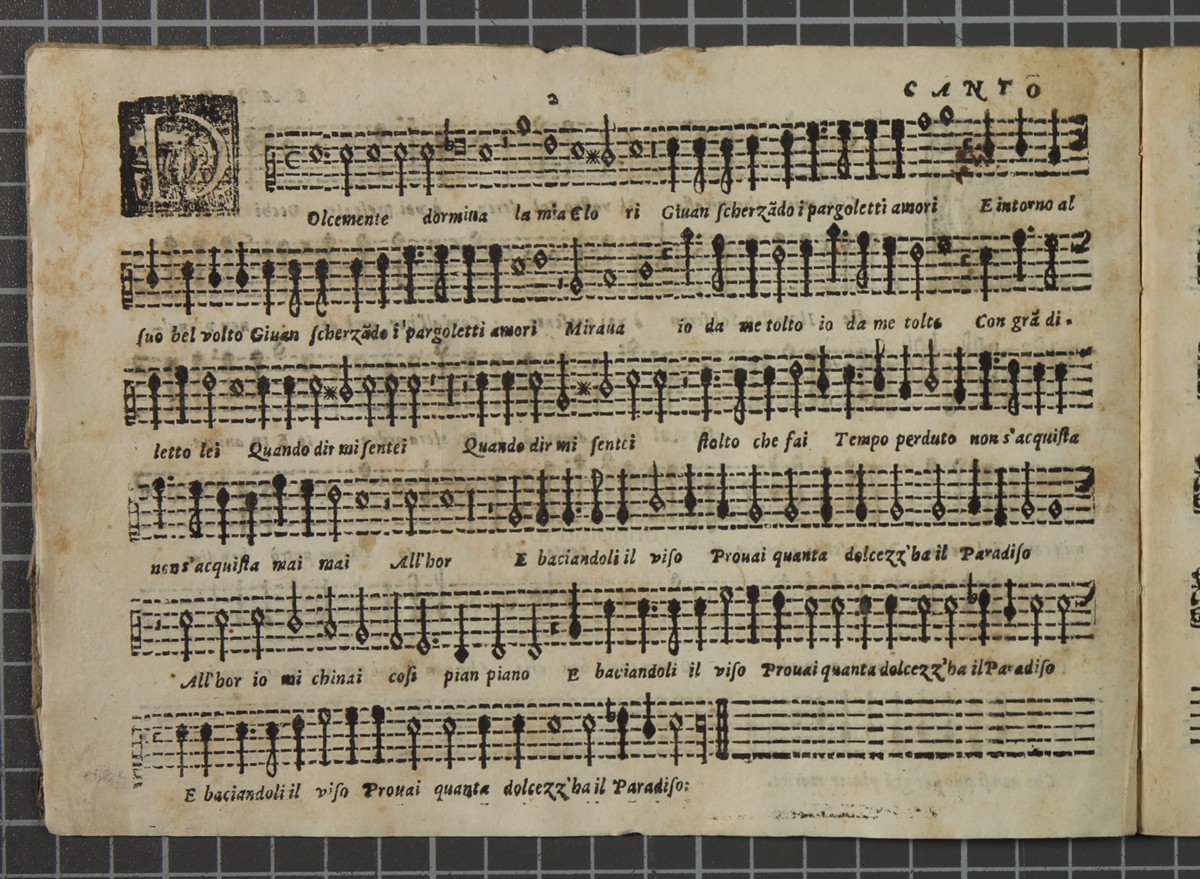 2
CANTO
DOlcemente dormiua la mia Clo ri Giuan scherzãdo i pargoletti amori E intorno al
suo bel volto Giuan scherzãdo i pargoletti amori Miraua io da me tolto io da me tolto Con grã di-
letto lei Quando dir mi sentei Quando dir mi sentei stolto che fai Tempo perduto non s'acquista
non s'acquista mai mai All'hor E baciandoli il viso Prouai quanta dolcezz'ha il Paradiso
All'hor io mi chinai cosi pian piano E baciandoli il viso Prouai quanta dolcezz'ha il Paradiso
E baciandoli il viso Prouai quanta dolcezz'ha il Paradiso: